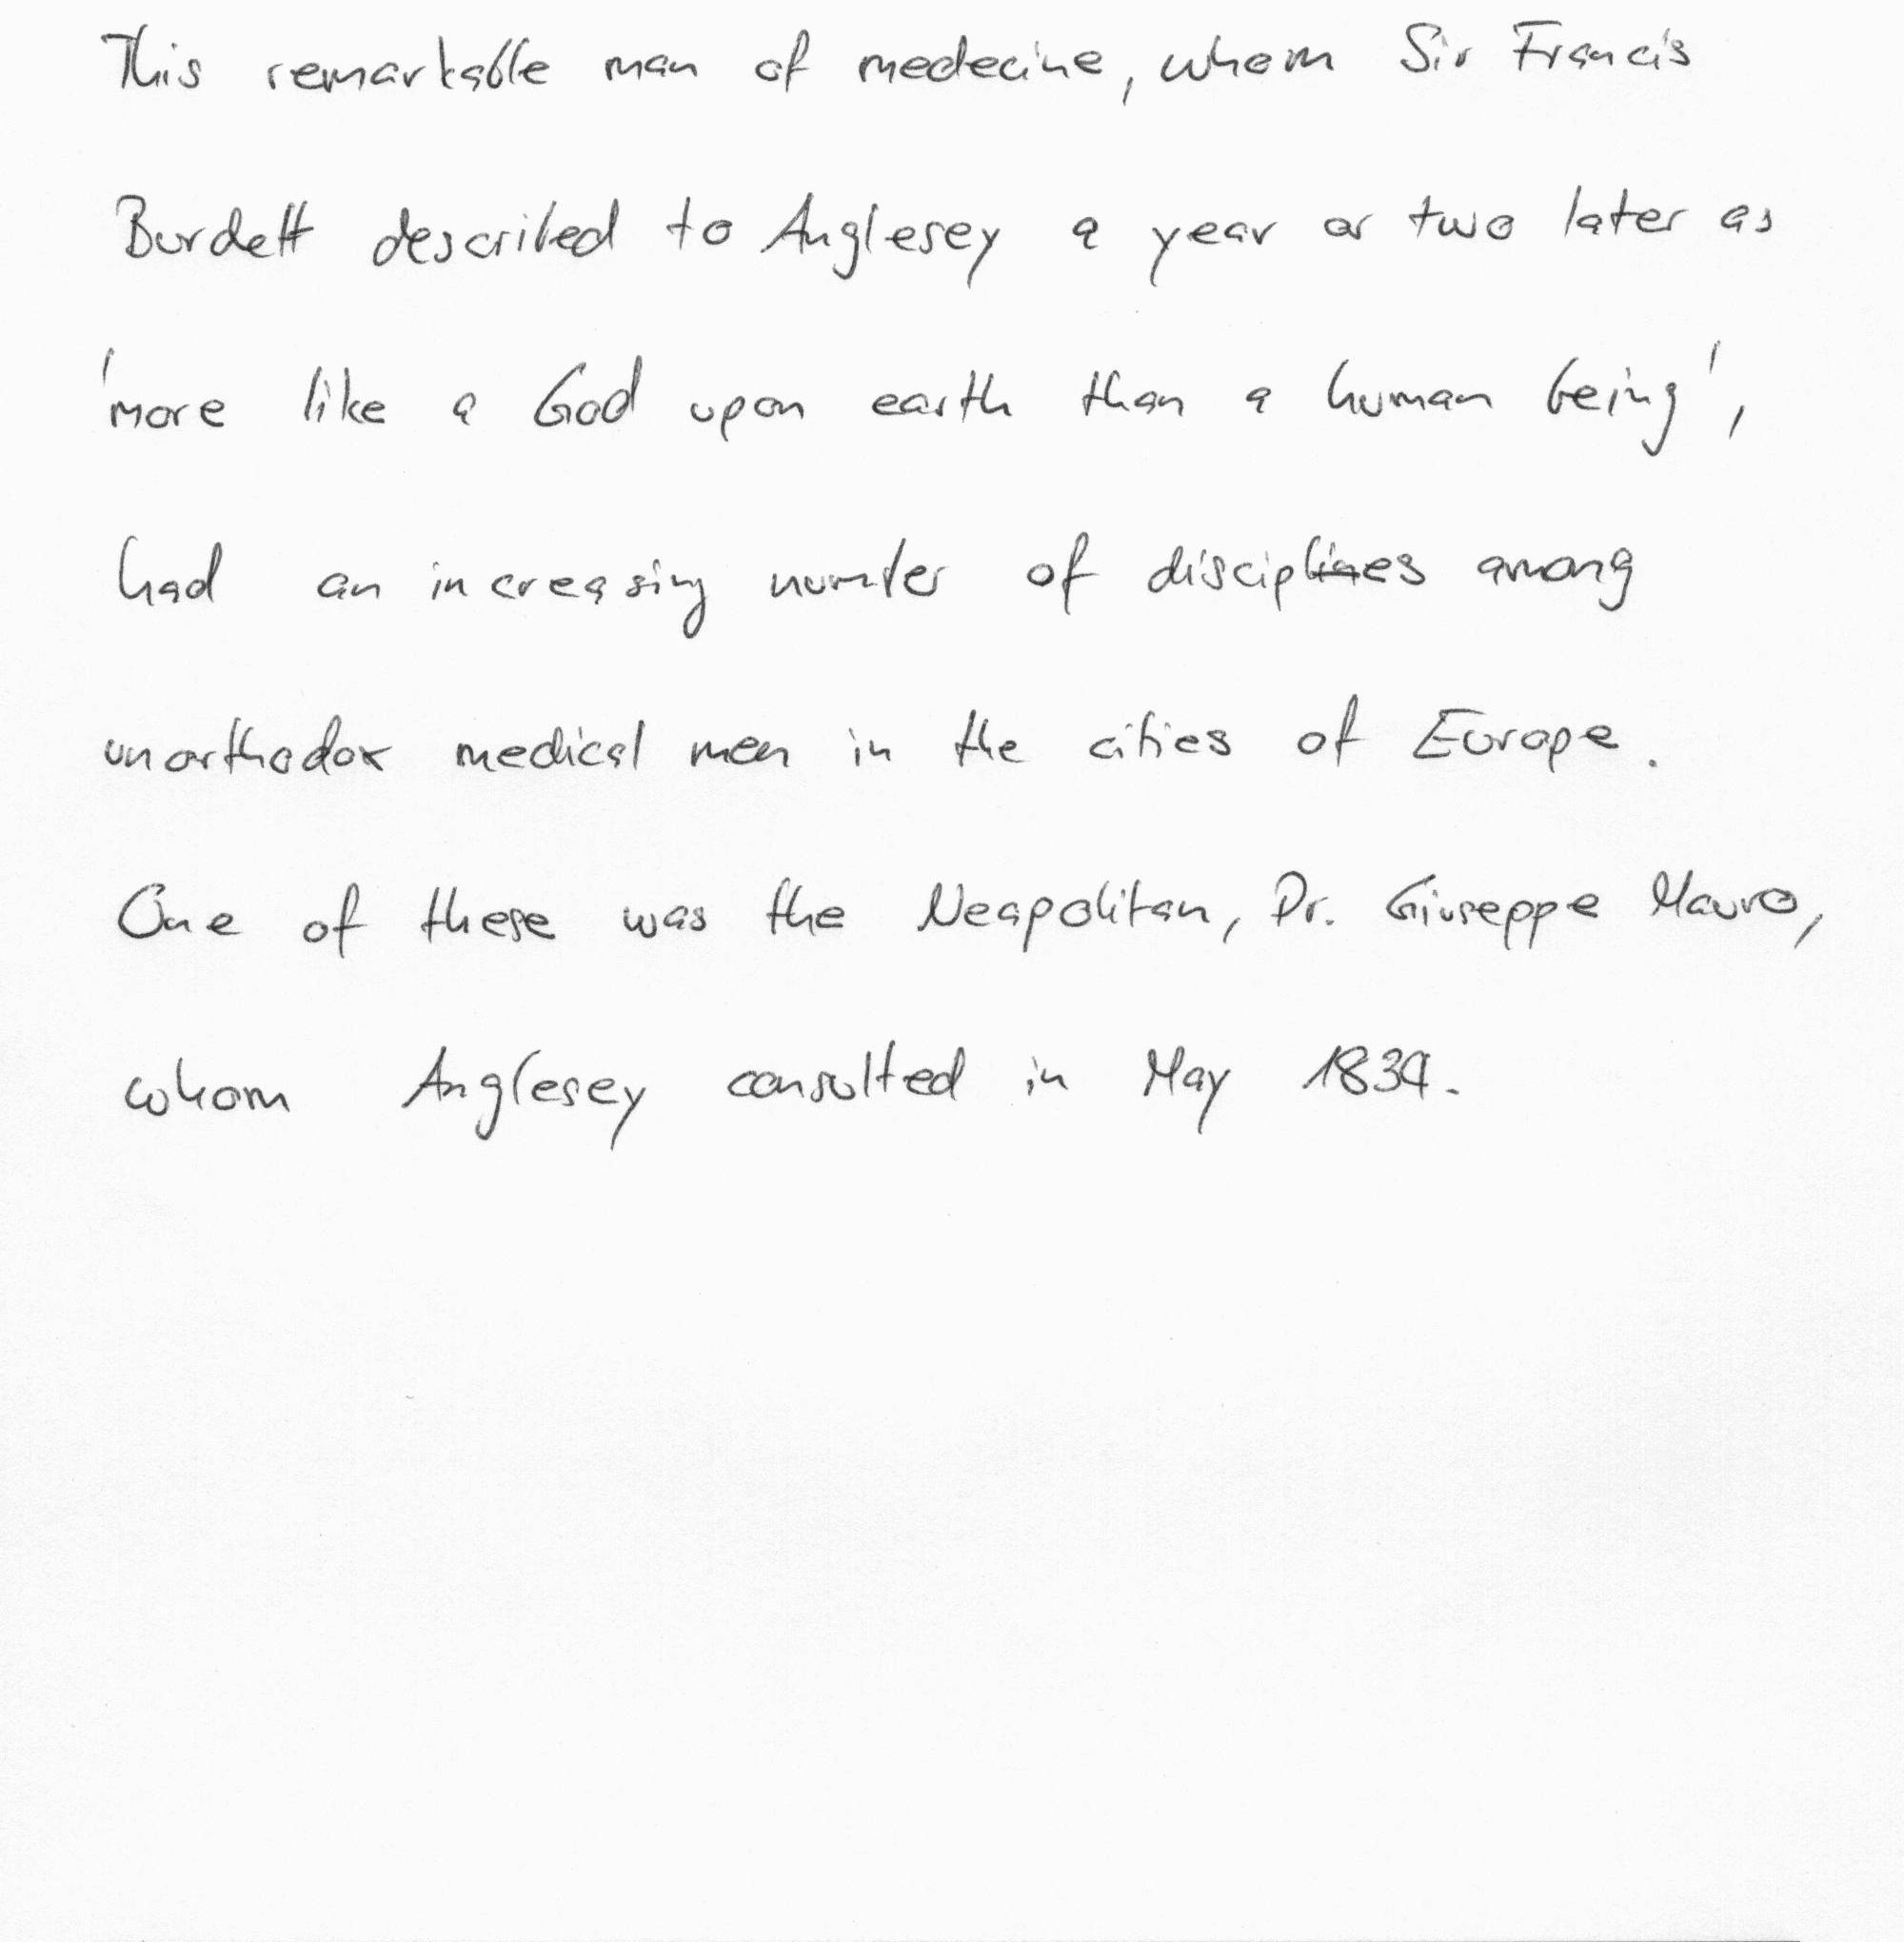 This remarkable man of medecine, whom Sir Francis
Burdett described to Anglesey a year or two later as
'more like a God upon earth than a human being',
had an increasing number of disciplines among
unorthodox medical men in the cities of Europe.
One of these was the Neapolitan, Dr. Giuseppe Mauro,
whom Anglesey consulted in May 1834.